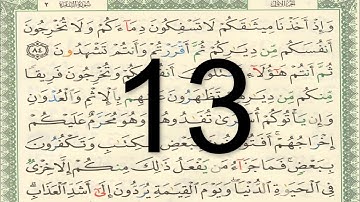 وَإِذْ أَخَذْنَا مِيثَٰقَكُمْ لَا تَسْفِكُونَ دِمَآءَكُمْ وَلَا تُخْرِجُونَ
أَنفُسَكُم مِّن دِيَٰرِكُمْ ثُمَّ أَقْرَرْتُمْ وَأَنتُمْ تَشْهَدُونَ ٨٤
ثُمَّ أَنتُمْ هَٰٓؤُلَآءِ أَنفُسَكُمْ وَتُخْرِجُونَ فَرِيقًا
مِّنكُم مِّن دِيَٰرِهِمْ تَظَٰهَرُونَ عَلَيْهِم بِٱلْإِثْمِ وَٱلْعُدْوَٰنِ
وَإِن يَأْتُوكُمْ أُسَٰرَىٰ تُفَٰدُوهُمْ وَهُوَ مُحَرَّمٌ عَلَيْكُمْ
إِخْرَاجُهُمْ أَفَتُؤْمِنُونَ بِبَعْضِ ٱلْكِتَٰبِ وَتَكْفُرُونَ
بِبَعْضٍ فَمَا جَزَآءُ مَن يَفْعَلُ ذَٰلِكَ مِنكُمْ إِلَّا خِزْىٌ
فِى ٱلْحَيَوٰةِ ٱلدُّنْيَا وَيَوْمَ ٱلْقِيَٰمَةِ يُرَدُّونَ إِلَىٰٓ أَشَدِّ ٱلْعَذَابِ
13